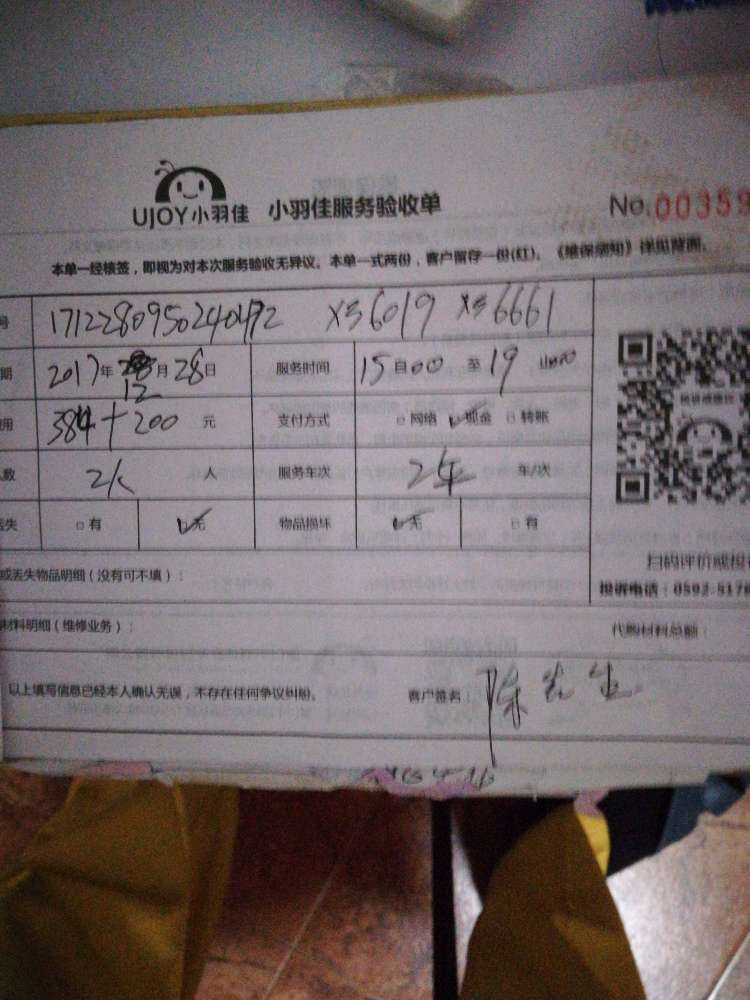 UJOY小羽佳 小羽佳服务验收单 No.00359
本单一经核签，即视为对本次服务验收无异议。本单一式两份，客户留存一份(红)。《维保须知》详见背面。
号 1712280950240492 X36019 X36661
期 2017年 12月28日 服务时间 15时00 至 19
用 384+200 元 支付方式 □网络 ☑现金 □转账
人数 2人 人 服务车次 2车 车/次
丢失 □有 ☑无 物品损坏 ☑无 □有
或丢失物品明细（没有可不填）：
扫码评价或投
投诉电话：0592-5176
材料明细（维修业务）： 代购材料总额：
以上填写信息已经本人确认无误，不存在任何争议纠纷。 客户签名：陈先生